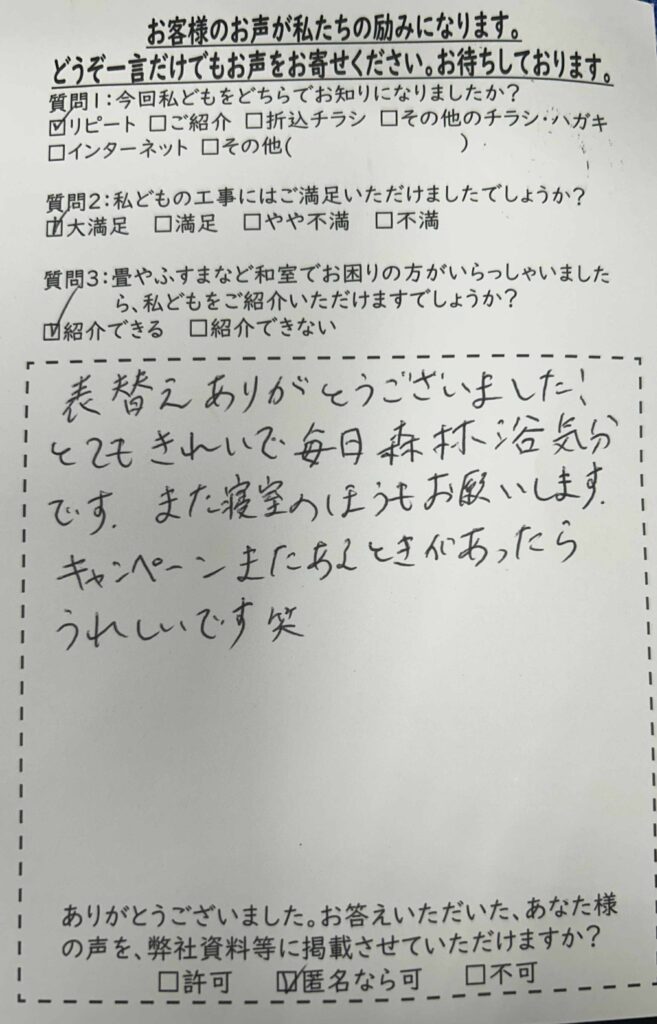 お客様のお声が私たちの励みになります。
どうぞ一言だけでもお声をお寄せください。お待ちしております。
質問1:今回私どもをどちらでお知りになりましたか?
☑リピート □ご紹介 □折込チラシ □その他のチラシ・ハガキ
□インターネット □その他( )
質問2:私どもの工事にはご満足いただけましたでしょうか?
☑大満足 □満足 □やや不満 □不満
質問3:畳やふすまなど和室でお困りの方がいらっしゃいました
ら、私どもをご紹介いただけますでしょうか?
☑紹介できる □紹介できない
表替えありがとうございました!
とてもきれいで毎日森林浴気分
です。また寝室のほうもお願いします。
キャンペーンまたあるときがあったら
うれしいです笑
ありがとうございました。お答えいただいた、あなた様
の声を、弊社資料等に掲載させていただけますか?
□許可 ☑匿名なら可 □不可